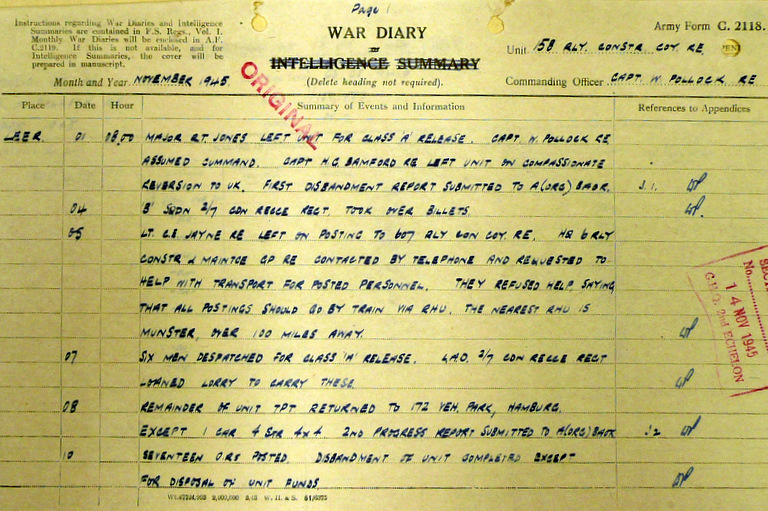 Page 1
Instructions regarding War Diaries and Intelligence
Summaries are contained in F.S. Regs., Vol. I.
Monthly War Diaries will be enclosed in A.F.
C.2119. If this is not available, and for
Intelligence Summaries, the cover will be
prepared in manuscript.
WAR DIARY
or
INTELLIGENCE SUMMARY
(Delete heading not required).
Army Form C. 2118.
Unit 158 RLY. CONSTR. COY. RE.
Month and Year NOVEMBER 1945.
Commanding Officer CAPT. W. POLLOCK. RE.
ORIGINAL
Place Date Hour Summary of Events and Information References to Appendices
LEER. 01 08.00 MAJOR R.T. JONES LEFT UNIT FOR CLASS 'A' RELEASE. CAPT. W. POLLOCK RE
ASSUMED COMMAND. CAPT H.G. BAMFORD RE LEFT UNIT ON COMPASSIONATE
REVERSION TO UK. FIRST DISBANDMENT REPORT SUBMITTED TO A(ORG) BAOR. J.1. WP
04 'B' SQDN 2/7 CDN RECCE REGT. TOOK OVER BILLETS. WP.
05 LT. C.E. JAYNE RE LEFT ON POSTING TO 607 RLY CON COY. RE. HQ 6 RLY
CONSTR & MAINTCE GP RE CONTACTED BY TELEPHONE AND REQUESTED TO
HELP WITH TRANSPORT FOR POSTED PERSONNEL. THEY REFUSED HELP SAYING
THAT ALL POSTINGS SHOULD GO BY TRAIN VIA RHU. THE NEAREST RHU IS
MUNSTER, OVER 100 MILES AWAY. WP
07 SIX MEN DESPATCHED FOR CLASS 'A' RELEASE. 2/7 CDN RECCE REGT
LOANED LORRY TO CARRY THESE. WP
08 REMAINDER OF UNIT TPT RETURNED TO 172 VEH. PARK, HAMBURG.
EXCEPT 1 CAR 4 STR 4x4. 2ND PROGRESS REPORT SUBMITTED TO A(ORG) BAOR J.2 WP
10 SEVENTEEN ORS POSTED. DISBANDMENT OF UNIT COMPLETED EXCEPT
FOR DISPOSAL OF UNIT FUNDS. WP
No.
14 NOV 1945
G.H.Q. 2nd ECHELON